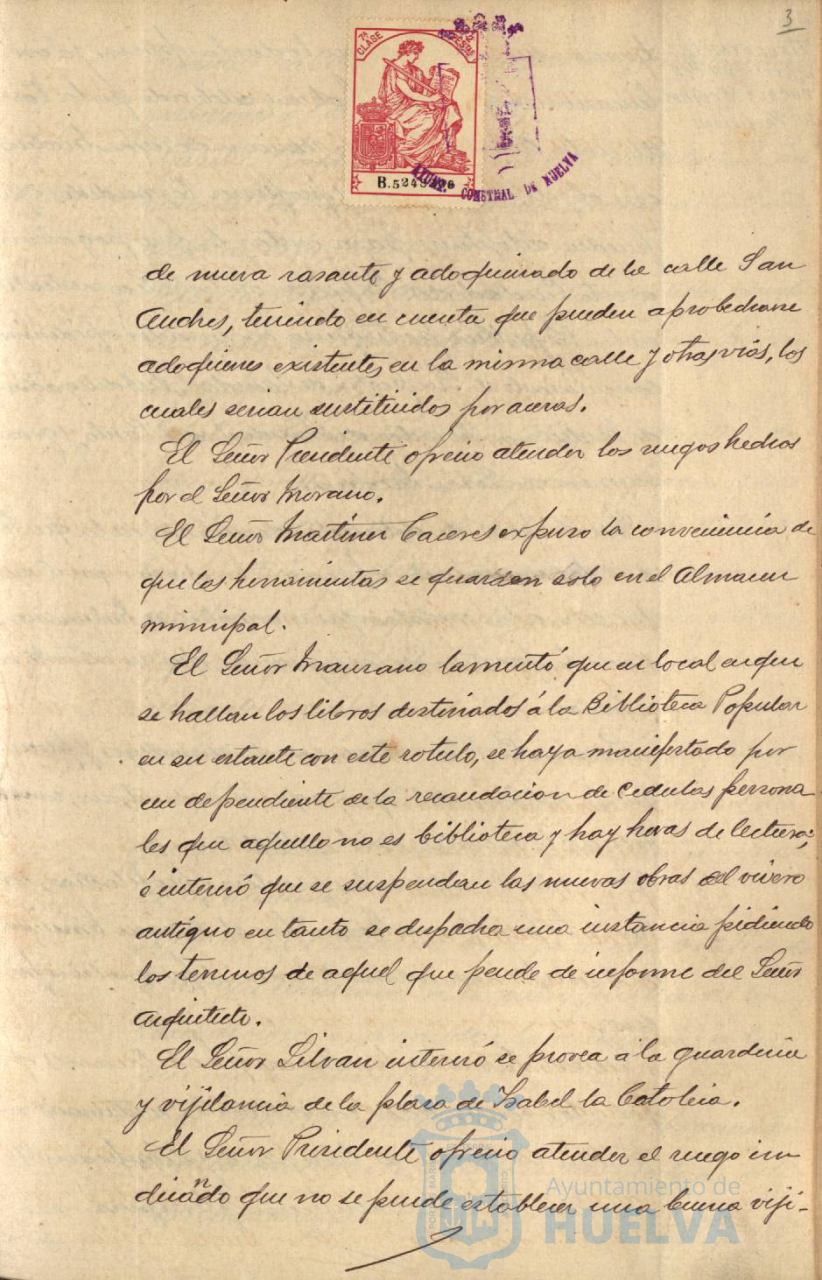 3
7ª CLASE
AYUNT. CONSTNAL DE HUELVA
de nueva rasante y adoquinado de la calle San
Andres, teniendo en cuenta que pueden aprobecharse
adoquines existentes en la misma calle y otras vias, los
cuales serian sustituidos por aceras.
El Señor Presidente ofrecio atender los ruegos hechos
por el Señor Morano.
El Señor Martinez Caceres expuso la conveniencia de
que las herramientas se guarden solo en el Almacen
municipal.
El Señor Manzano lamentó que en local en que
se hallan los libros destinados á la Biblioteca Popular
en su estante con este rotulo, se haya manifestado por
un dependiente de la recaudacion de Cedulas persona
les que aquello no es biblioteca y hay horas de lectura;
é interesó que se suspendan las nuevas obras del vivero
antiguo en tanto se despacha una instancia pidiendo
los terrenos de aquel que pende de informe del Señor
Arquitecto.
El Señor Silvan interesó se provea á la guarderia
y vijilancia de la plaza de Ysabel la Catolica.
El Señor Presidente ofrecio atender el ruego in
dicando que no se puede establecer una buena viji-
Ayuntamiento de
HUELVA